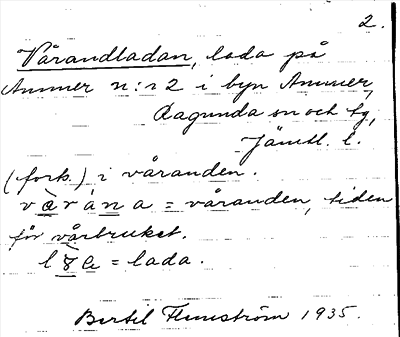 2.
Vårandladan, lada på
Ammer n:r 2 i byn Ammer,
Ragunda sn och tg,
Jämtl. l.
(fork.) i våranden.
v å̀ r á n a = våranden, tiden
för vårbruket.
l = lada.
Bertil Flemström 1935.